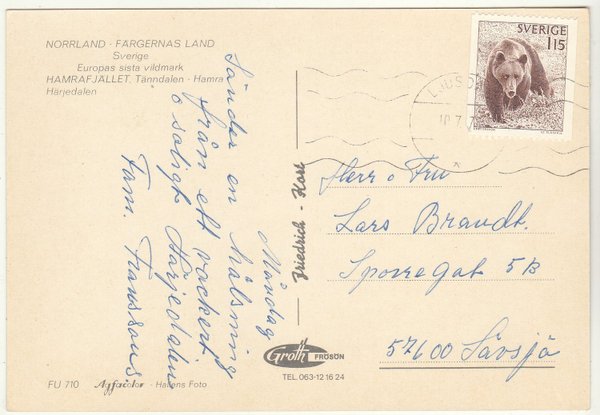 NORRLAND · FÄRGERNAS LAND
Sverige
Europas sista vildmark
HAMRAFJÄLLET, Tänndalen · Hamra
Härjedalen
SVERIGE
115
LJUSD
10.7.7
Måndag
Sänder en hälsning
från ett vackert
o soligt Härjedalen
Fam. Franssons
Friedrich - Kort
Herr o Fru
Lars Brandt.
Sporregat 5B
57600 Sävsjö
Groth FRÖSÖN
TEL. 063-12 16 24
FU 710 Agfacolor · Hallens Foto